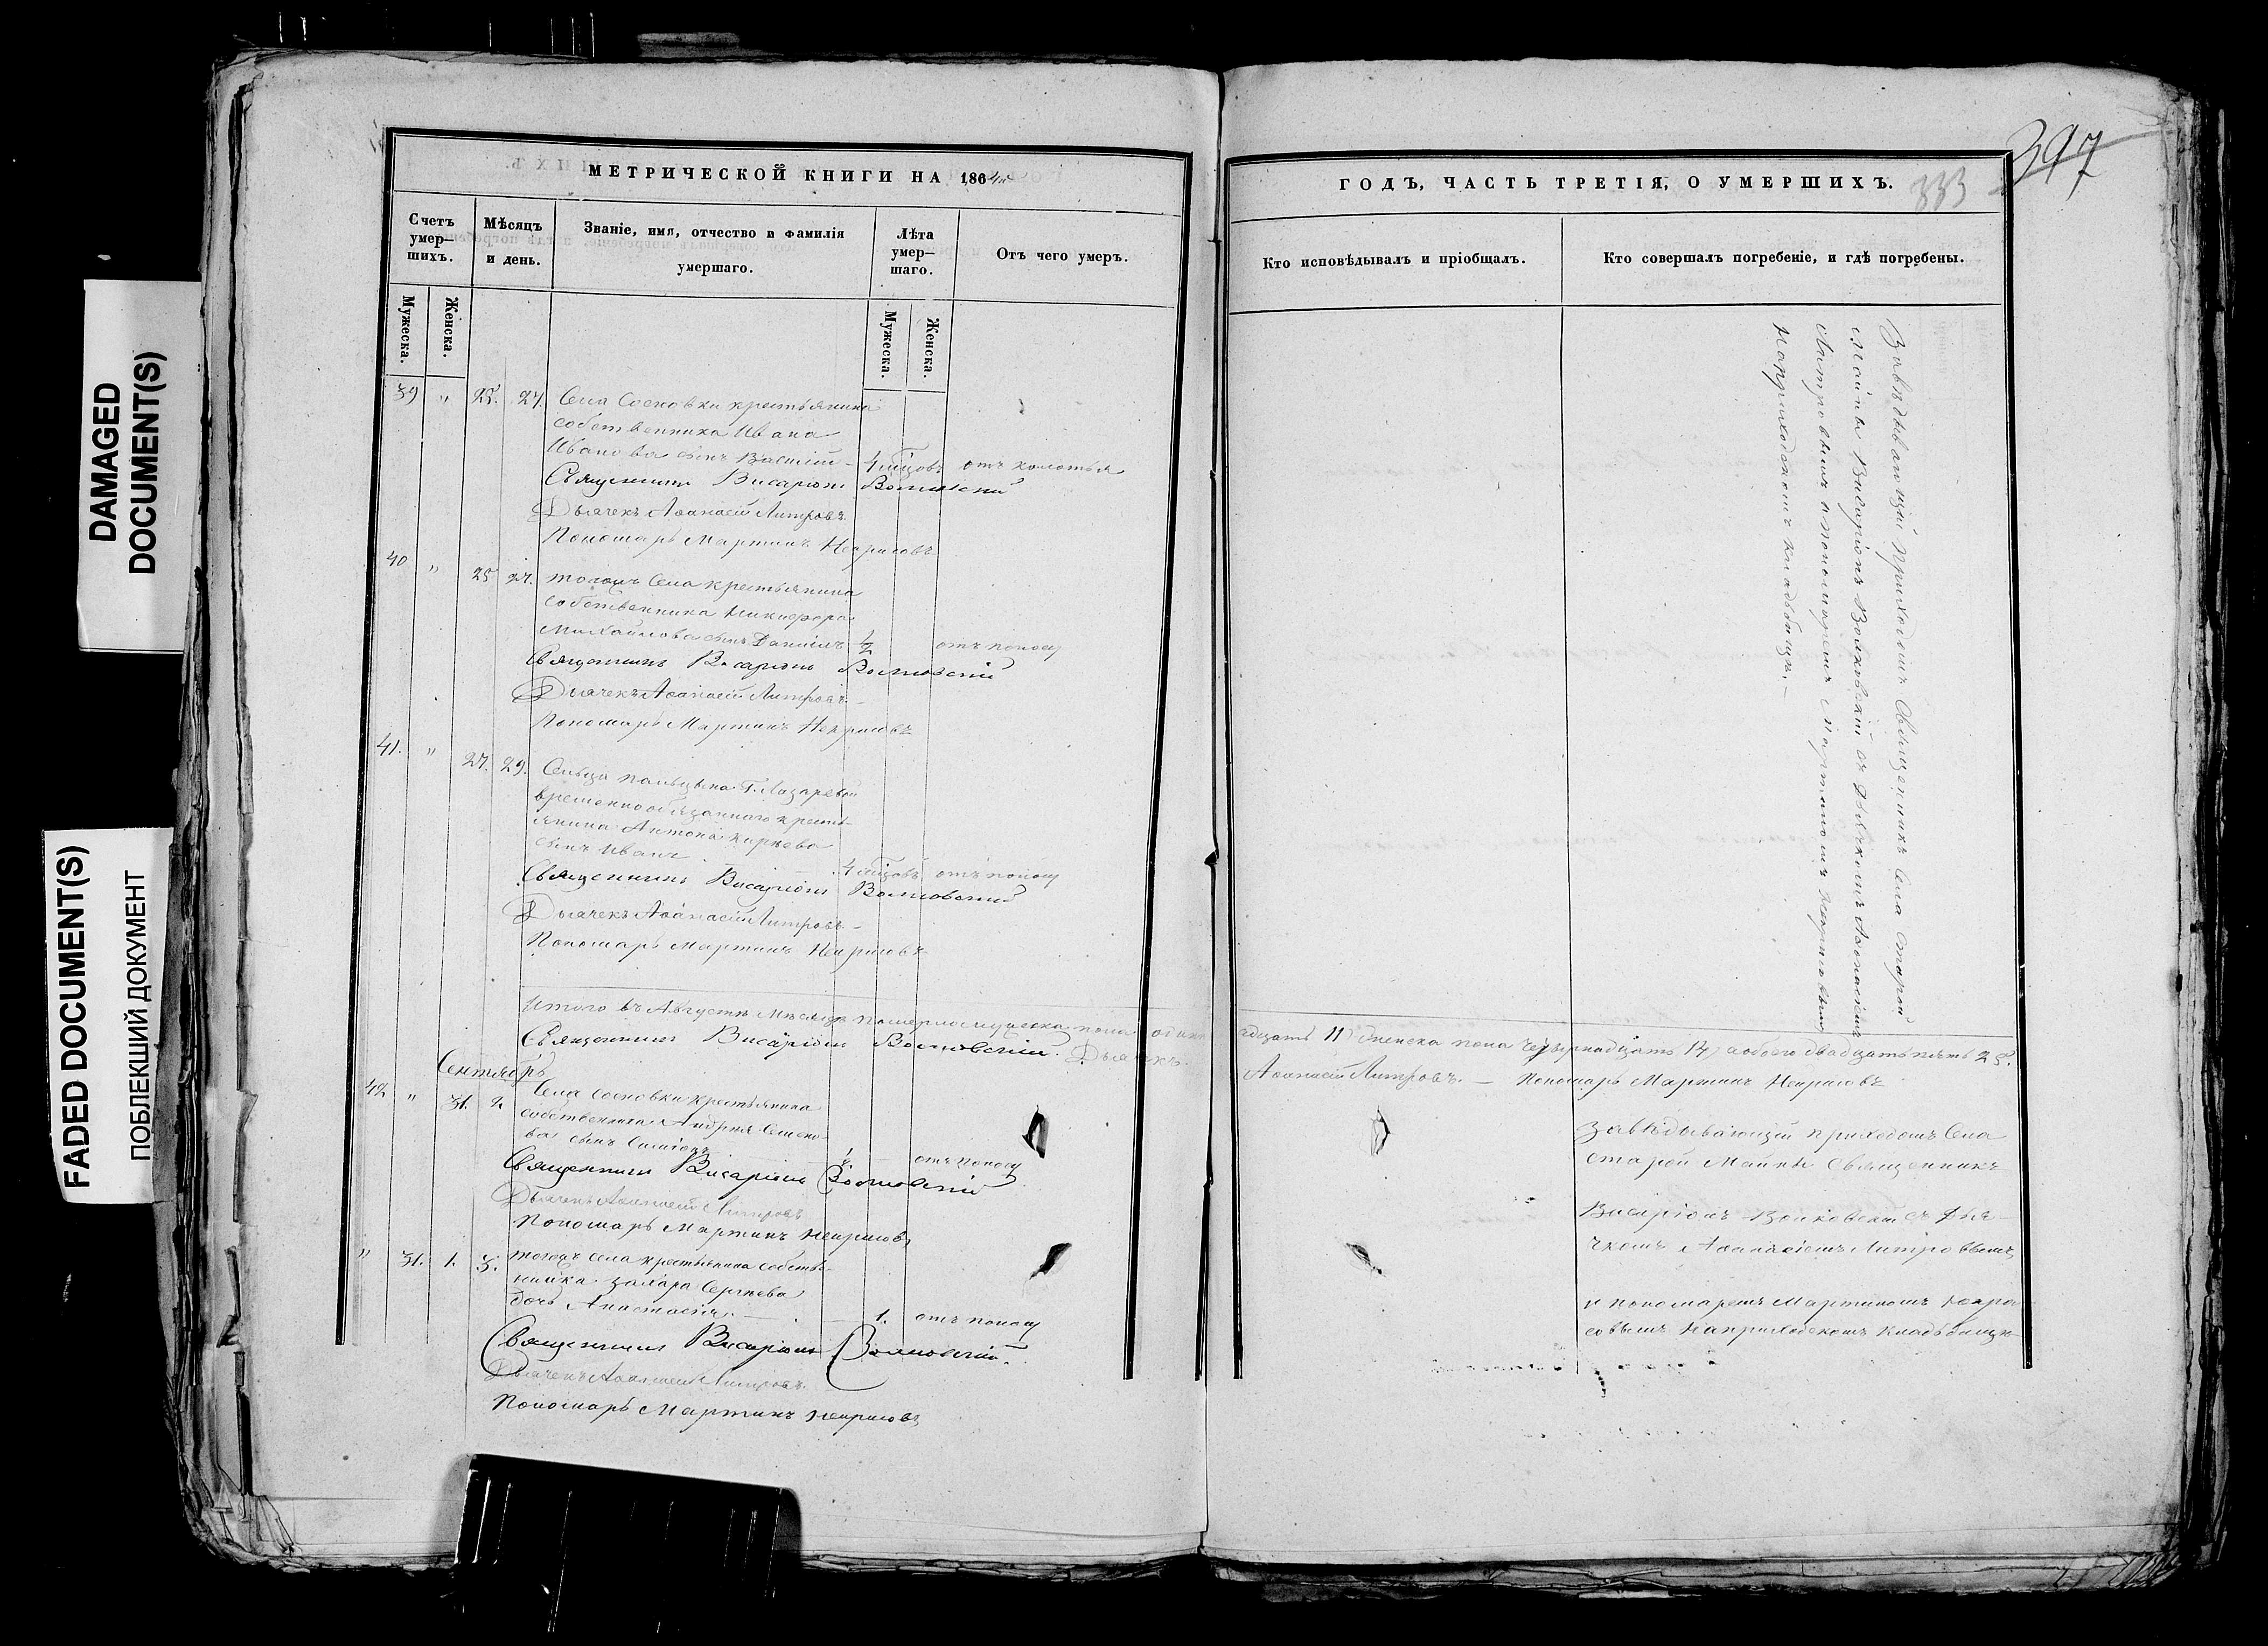 DAMAGED
DOCUMENT(S)
FADED DOCUMENT(S)
ПОБЛЕКШИЙ ДОКУМЕНТ
МЕТРИЧЕСКОЙ КНИГИ НА 1864й
Счетъ умер—шихъ.
Мѣсяцъ и день.
Званіе, имя, отчество и фамилія умершаго.
Лѣта умер—шаго.
Отъ чего умеръ.
Мужеска.
Женска.
Мужеска.
Женска.
39 " 25. 27. Села Сосновки крестьянина
собственника Ивана
Иванова сынъ Василій 4 мѣсцовъ отъ колотья
Священникъ Висаріонъ Волковский
Дьячекъ Аѳанасій Литровъ
Пономарь Мартинъ Некрасовъ
40 " 25 27. тогожъ Села крестьянина
собственника Никифора
Михайлова сынъ Даніилъ ½ отъ поносу
Священникъ Висаріонъ Волковскій
Дьячекъ Аѳанасій Литровъ.
Пономарь Мартинъ Некрасовъ
41. " 27. 29. Сельца Г. Лазаревой
временнообязаннаго кресть-
янина Антона
сынъ Иванъ 4 мѣсцовъ отъ поносу
Священникъ Висаріонъ Волковский
Дьячекъ Аѳанасій Литровъ
Пономарь Мартинъ Некрасовъ
Итого въ Августѣ Мѣсяцѣ померло мужеска пола одинн
Священникъ Висаріонъ Волковскій. Дьячекъ
Сентябрь
42 " 31. 2 Села Сосновки крестьянина
собственника Андрея Семено-
ва сынъ отъ поносу
Священникъ Висаріонъ Волковскій
Дьячекъ Аѳанасій Литровъ
Пономарь Мартинъ Некрасовъ
" 31. 1. 3. тогожъ села крестьянина собстве-
нника Захара Сергѣева
дочь Анастасія 1. отъ поносу
Священникъ Висаріонъ Волковскій.
Дьячекъ Аѳанасій Литровъ.
Пономарь Мартинъ Некрасовъ
397
333
ГОДЪ, ЧАСТЬ ТРЕТІЯ, О УМЕРШИХЪ.
Кто исповѣдывалъ и пріобщалъ.
Кто совершалъ погребеніе, и гдѣ погребены.
Завѣдывающій приходомъ Священникъ села старой
Майны Висаріонъ Волковскій съ дьячкомъ Аѳанасіемъ
Литровымъ и пономаремъ Мартиномъ Некрасовымъ
на приходскомъ кладбищѣ.
адцать 11) женска пола четырнадцать 14) а обоего двадцать пять 25.
Аѳанасій Литровъ. — Пономарь Мартинъ Некрасовъ
Завѣдывающій приходомъ Села
старой Майны Священникъ
Висаріонъ Волковскій съ Дья-
чкомъ Аѳанасіемъ Литровымъ
и пономаремъ Мартиномъ Некра
совымъ на приходскомъ кладбищѣ